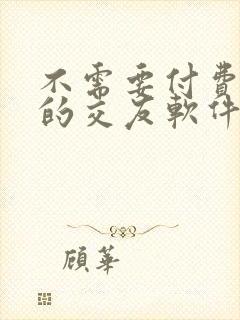 不需要付費
的交友軟件
顧華